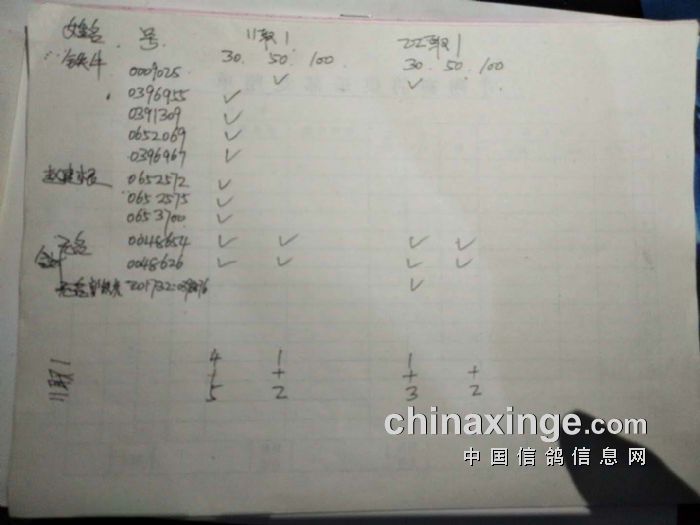 姓名 号 11取1 22取1
30. 50. 100 30. 50. 100
铁牛 0009025 ✓ ✓
0396955 ✓
0391309 ✓
0652069 ✓
0396967 ✓
0652572 ✓
0652575 ✓
0653700 ✓
无名 0048654 ✓ ✓ ✓ ✓
0048626 ✓ ✓ ✓ ✓
✓
4 1 1
11取1 + + +
5 2 3 2
chinaxinge.com
中国信鸽信息网